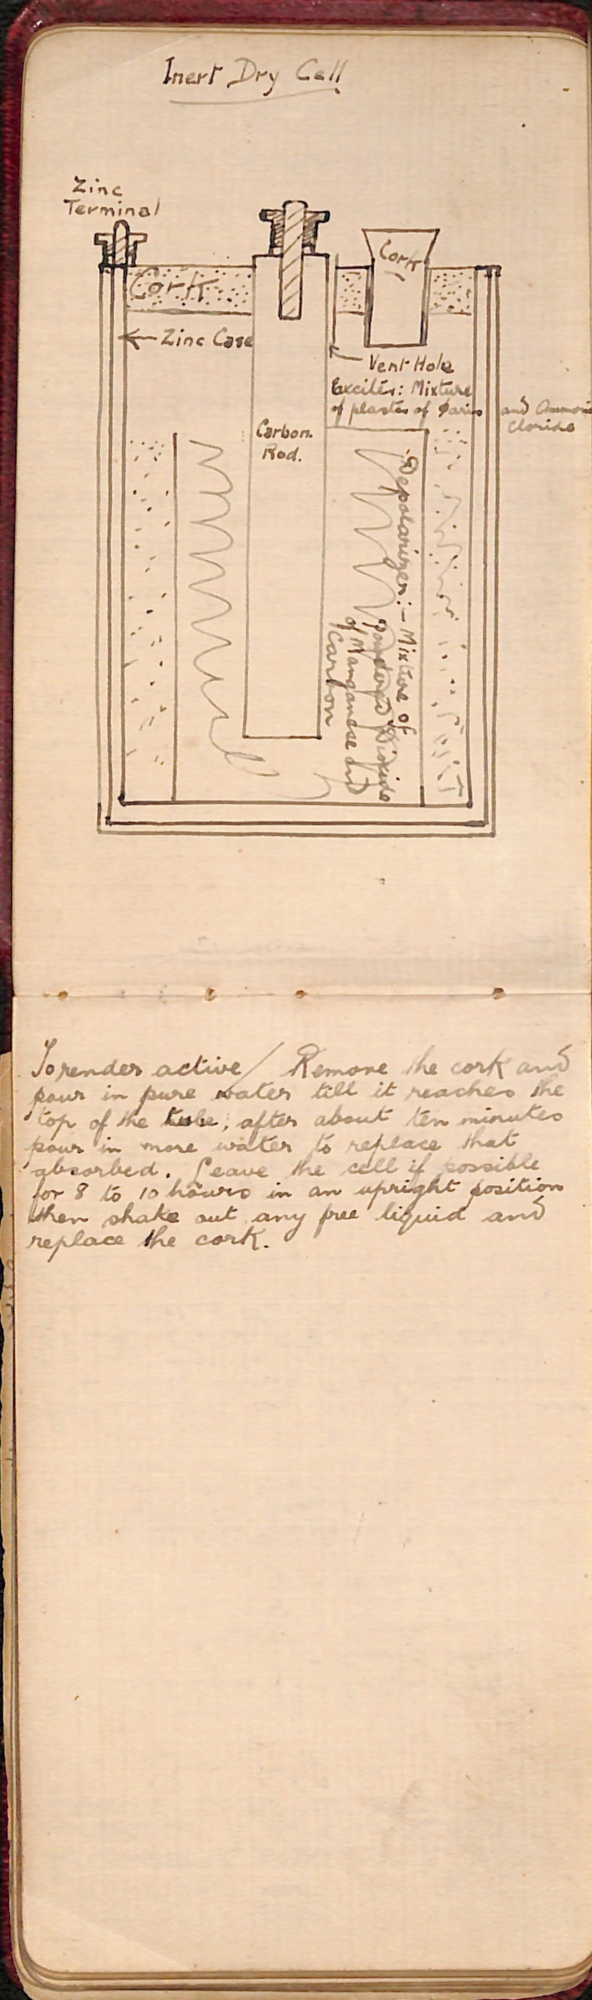 Inert Dry Cell
Zinc
Terminal
Cork
Cork
← Zinc Case
Vent Hole
Excites: Mixture
of plastes of Paris and Ammonia
Cloride
Carbon
Rod.
Depolarizer:- Mixture of
Powdered Dioxide
of Manganese and
Carbon
To render active / Remove the cork and
pour in pure water till it reaches the
top of the tube, after about ten minutes
pour in more water to replace that
absorbed. Leave the cell if possible
for 8 to 10 hours in an upright position
then shake out any free liquid and
replace the cork.